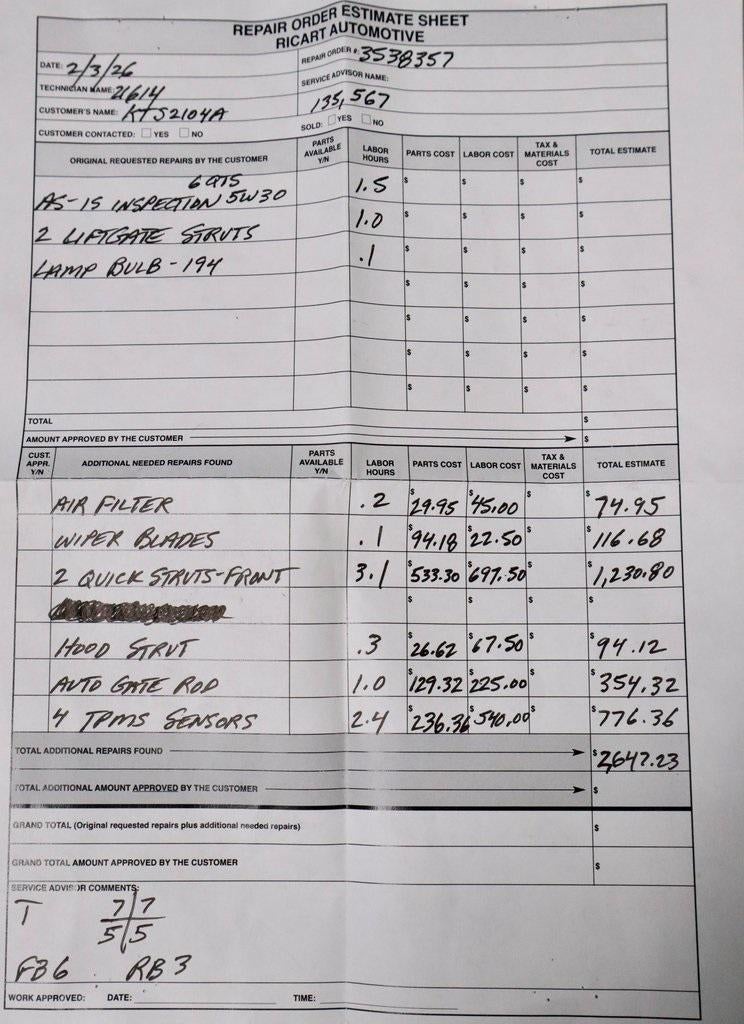 REPAIR ORDER ESTIMATE SHEET
RICART AUTOMOTIVE
DATE: 2/3/26 REPAIR ORDER #: 3538357
TECHNICIAN NAME: 21614 SERVICE ADVISOR NAME:
CUSTOMER'S NAME: KTS2104A 135,567
CUSTOMER CONTACTED: YES NO SOLD: YES NO
ORIGINAL REQUESTED REPAIRS BY THE CUSTOMER PARTS AVAILABLE Y/N LABOR HOURS PARTS COST LABOR COST TAX & MATERIALS COST TOTAL ESTIMATE
6 QTS
AS-IS INSPECTION 5W30 1.5 $ $ $ $
2 LIFTGATE STRUTS 1.0 $ $ $ $
LAMP BULB - 194 .1 $ $ $ $
$ $ $ $
$ $ $ $
$ $ $ $
$ $ $ $
TOTAL $
AMOUNT APPROVED BY THE CUSTOMER $
CUST. APPR. Y/N ADDITIONAL NEEDED REPAIRS FOUND PARTS AVAILABLE Y/N LABOR HOURS PARTS COST LABOR COST TAX & MATERIALS COST TOTAL ESTIMATE
AIR FILTER .2 $29.95 $45.00 $ $74.95
WIPER BLADES .1 $94.18 $22.50 $ $116.68
2 QUICK STRUTS-FRONT 3.1 $533.30 $697.50 $ $1,230.80
$ $ $ $
HOOD STRUT .3 $26.62 $67.50 $ $94.12
AUTO GATE ROD 1.0 $129.32 $225.00 $ $354.32
4 TPMS SENSORS 2.4 $236.36 $540.00 $ $776.36
TOTAL ADDITIONAL REPAIRS FOUND $2,647.23
TOTAL ADDITIONAL AMOUNT APPROVED BY THE CUSTOMER $
GRAND TOTAL (Original requested repairs plus additional needed repairs) $
GRAND TOTAL AMOUNT APPROVED BY THE CUSTOMER $
SERVICE ADVISOR COMMENTS:
T 7/7
5/5
FB6 RB3
WORK APPROVED: DATE: TIME: